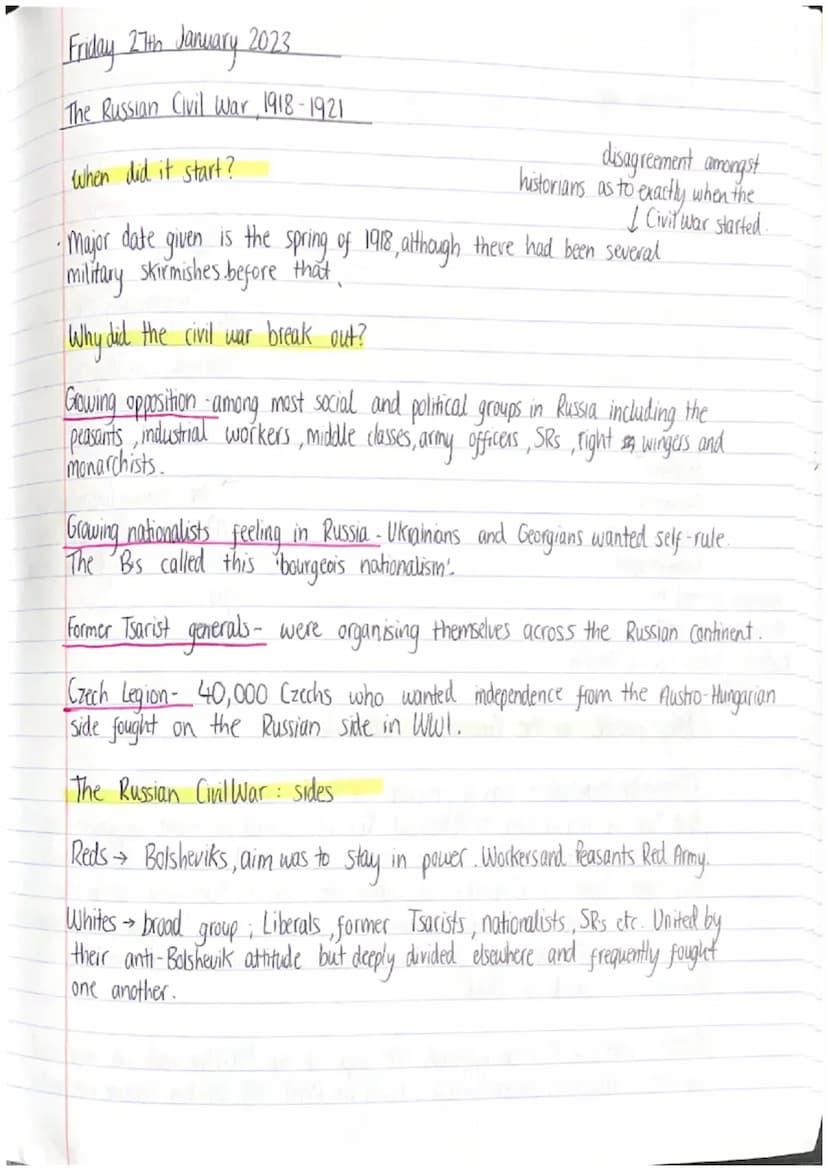 Friday 27th January 2023
The Russian Civil War, 1918-1921
When did it start?
disagreement amongst
historians as to exactly when the
↓ Civil War started.
· Major date given is the spring of 1918, although there had been several
military skirmishes before that.
Why did the civil war break out?
Growing opposition - among most social and political groups in Russia including the
peasants, industrial workers, middle classes, army officers, SRs, right wingers and
monarchists.
Growing nationalists feeling in Russia - Ukrainians and Georgians wanted self-rule.
The Bs called this 'bourgeois nationalism'.
Former Tsarist generals- were organising themselves across the Russian continent.
Czech Legion- 40,000 Czechs who wanted independence from the Austro-Hungarian
side fought on the Russian side in WW1.
The Russian Civil War: sides
Reds → Bolsheviks, aim was to stay in power. Workers and Peasants Red Army.
Whites → broad group; Liberals, former Tsarists, nationalists, SRs etc. United by
their anti-Bolshevik attitude but deeply divided elsewhere and frequently fought
one another.